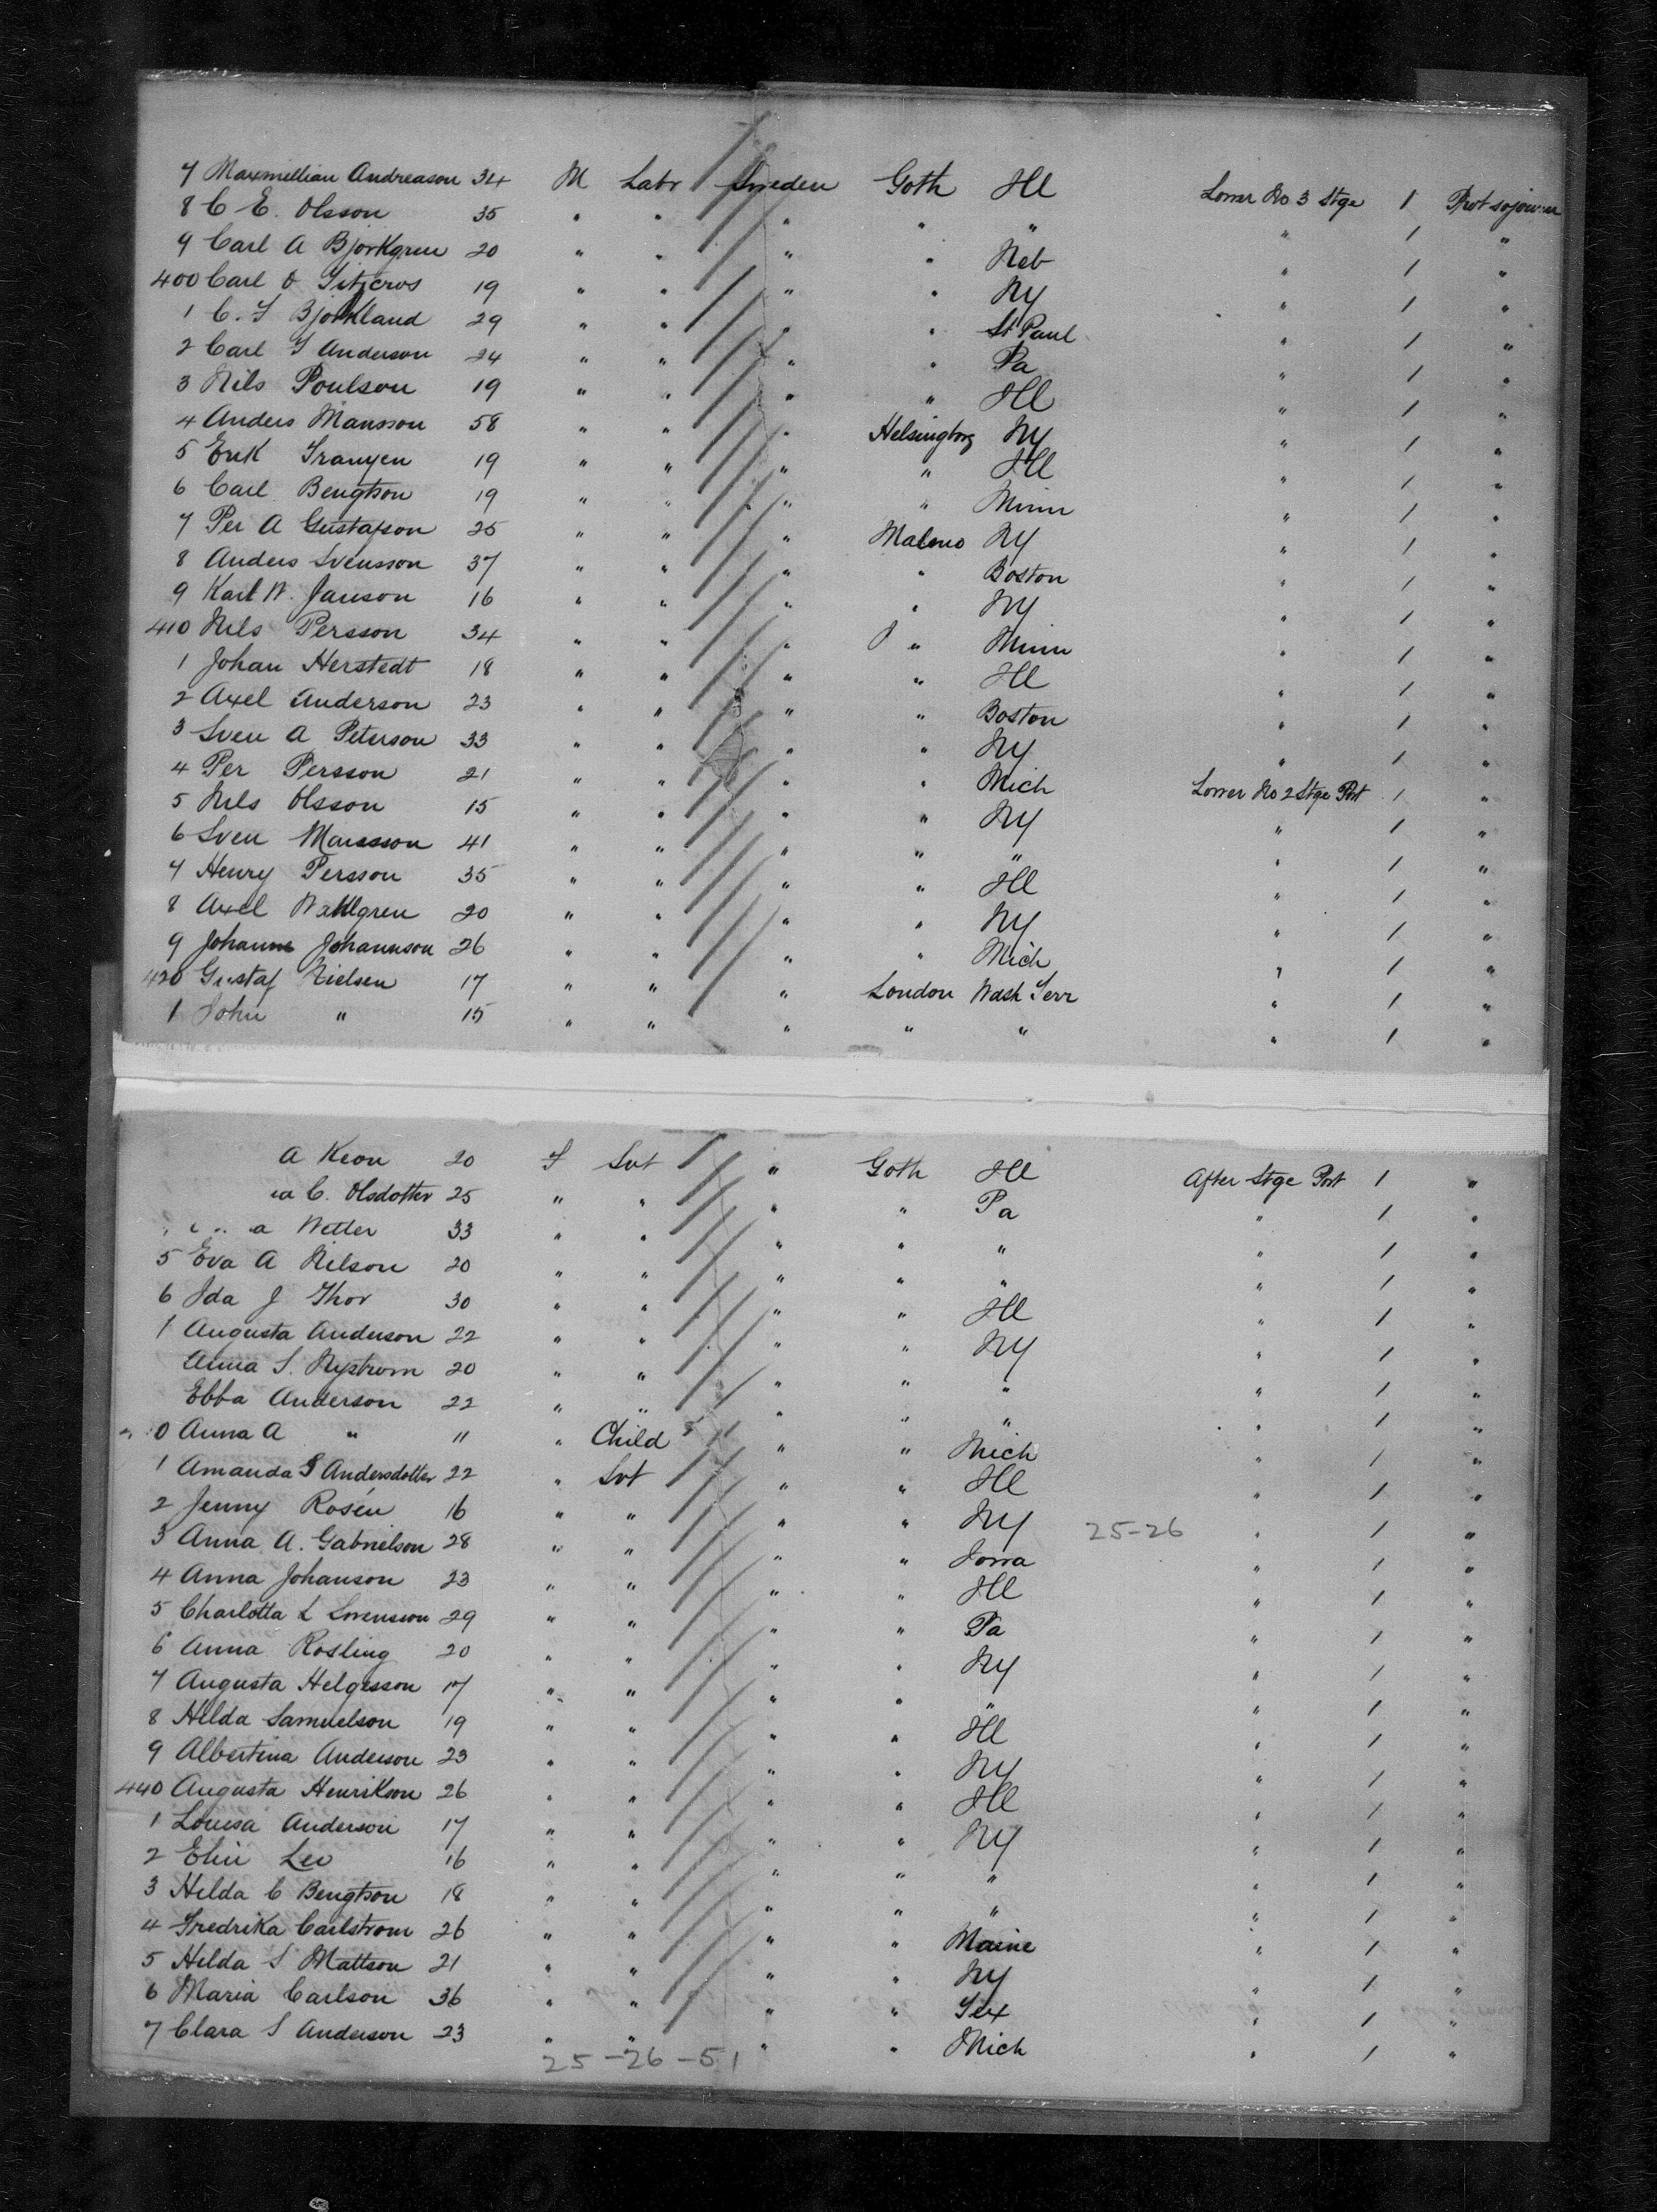 7 Maxmillian Andreason 34 M Labr Sweden Goth Ill Lower No 3 Stge 1 Prot sojourner
8 C E. Olsson 35 " " " " " " 1 "
9 Carl A Bjorkgren 20 " " " " Neb " 1 "
400 Carl O 19 " " " " NY " 1 "
1 C. F Bjorkland 29 " " " " St Paul " 1 "
2 Carl F Anderson 24 " " " " Pa " 1 "
3 Nils Poulson 19 " " " " Ill " 1 "
4 Anders Mansson 58 " " " Helsingborg NY " 1 "
5 Erik 19 " " " " Ill " 1 "
6 Carl Bengtson 19 " " " " Minn " 1 "
7 Per A Gustafson 25 " " " Malmo NY " 1 "
8 Anders Svensson 37 " " " " Boston " 1 "
9 Karl W. Janson 16 " " " " NY " 1 "
410 Nils Persson 34 " " " " Minn " 1 "
1 Johan Herstedt 18 " " " " Ill " 1 "
2 Axel Anderson 23 " " " " Boston " 1 "
3 Sven A Peterson 33 " " " " NY " 1 "
4 Per Persson 21 " " " " Mich Lower No 2 Stge Port 1 "
5 Nils Olsson 15 " " " " NY " 1 "
6 Sven Mansson 41 " " " " " " 1 "
7 Henry Persson 35 " " " " Ill " 1 "
8 Axel Wahlgren 20 " " " " NY " 1 "
9 Johanne Johannson 26 " " " " Mich " 1 "
420 Gustaf Nielsen 17 " " " London Wash Terr " 1 "
1 John " 15 " " " " " " 1 "
A Keon 20 F Svt " Goth Ill After Stge Port 1 "
C. Olsdotter 25 " " " " Pa " 1 "
a Wetler 33 " " " " " " 1 "
5 Eva A Nilson 20 " " " " " " 1 "
6 Ida J Thor 30 " " " " Ill " 1 "
7 Augusta Anderson 22 " " " " NY " 1 "
Anna S. Nystrom 20 " " " " " " 1 "
Ebba Anderson 22 " " " " " " 1 "
0 Anna A " 11 " Child " " Mich " 1 "
1 Amanda S Andersdotter 22 " Svt " " Ill " 1 "
2 Jenny Rosén 16 " " " " NY 25-26 " 1 "
3 Anna A. Gabrielson 28 " " " " Iowa " 1 "
4 Anna Johanson 23 " " " " Ill " 1 "
5 Charlotta L Sorensson 29 " " " " Pa " 1 "
6 Anna Rosling 20 " " " " NY " 1 "
7 Augusta Helgesson 17 " " " " " " 1 "
8 Hilda Samuelson 19 " " " " Ill " 1 "
9 Albertina Anderson 23 " " " " NY " 1 "
440 Augusta Henrikson 26 " " " " Ill " 1 "
1 Louisa Anderson 17 " " " " NY " 1 "
2 Elin Leo 16 " " " " " " 1 "
3 Hilda C Bengtson 18 " " " " " " 1 "
4 Fredrika Carlstrom 26 " " " " Maine " 1 "
5 Hilda S Mattson 21 " " " " NY " 1 "
6 Maria Carlson 36 " " " " Tex " 1 "
7 Clara S Anderson 23 " " " " Mich " 1 "
25-26-51